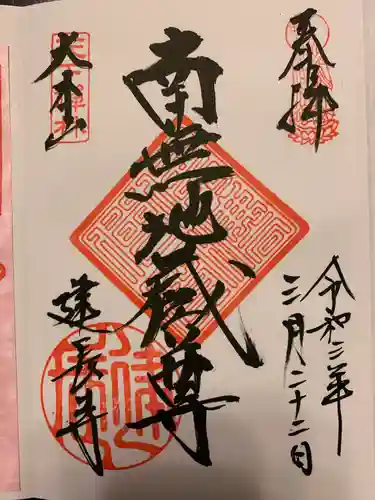 奉拝
令和三年
三月二十二日
南無地蔵尊
大本山
建長寺